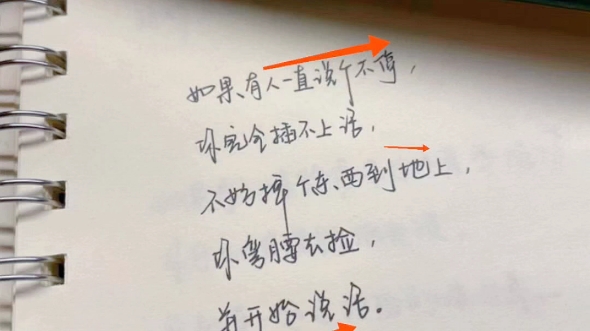 如果有人一直说个不停，
你完全插不上话，
不妨掉个东西到地上，
你弯腰去捡，
并开始说话。